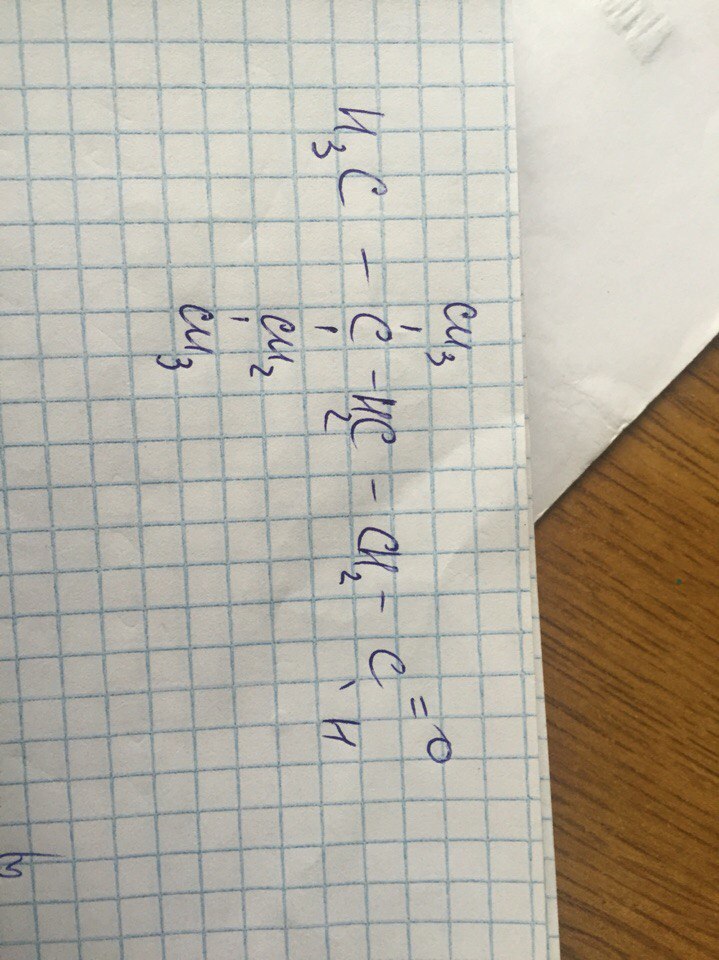 CH₃
H₃C - C - H₂C - CH₂ - C = O
CH₂ H
CH₃